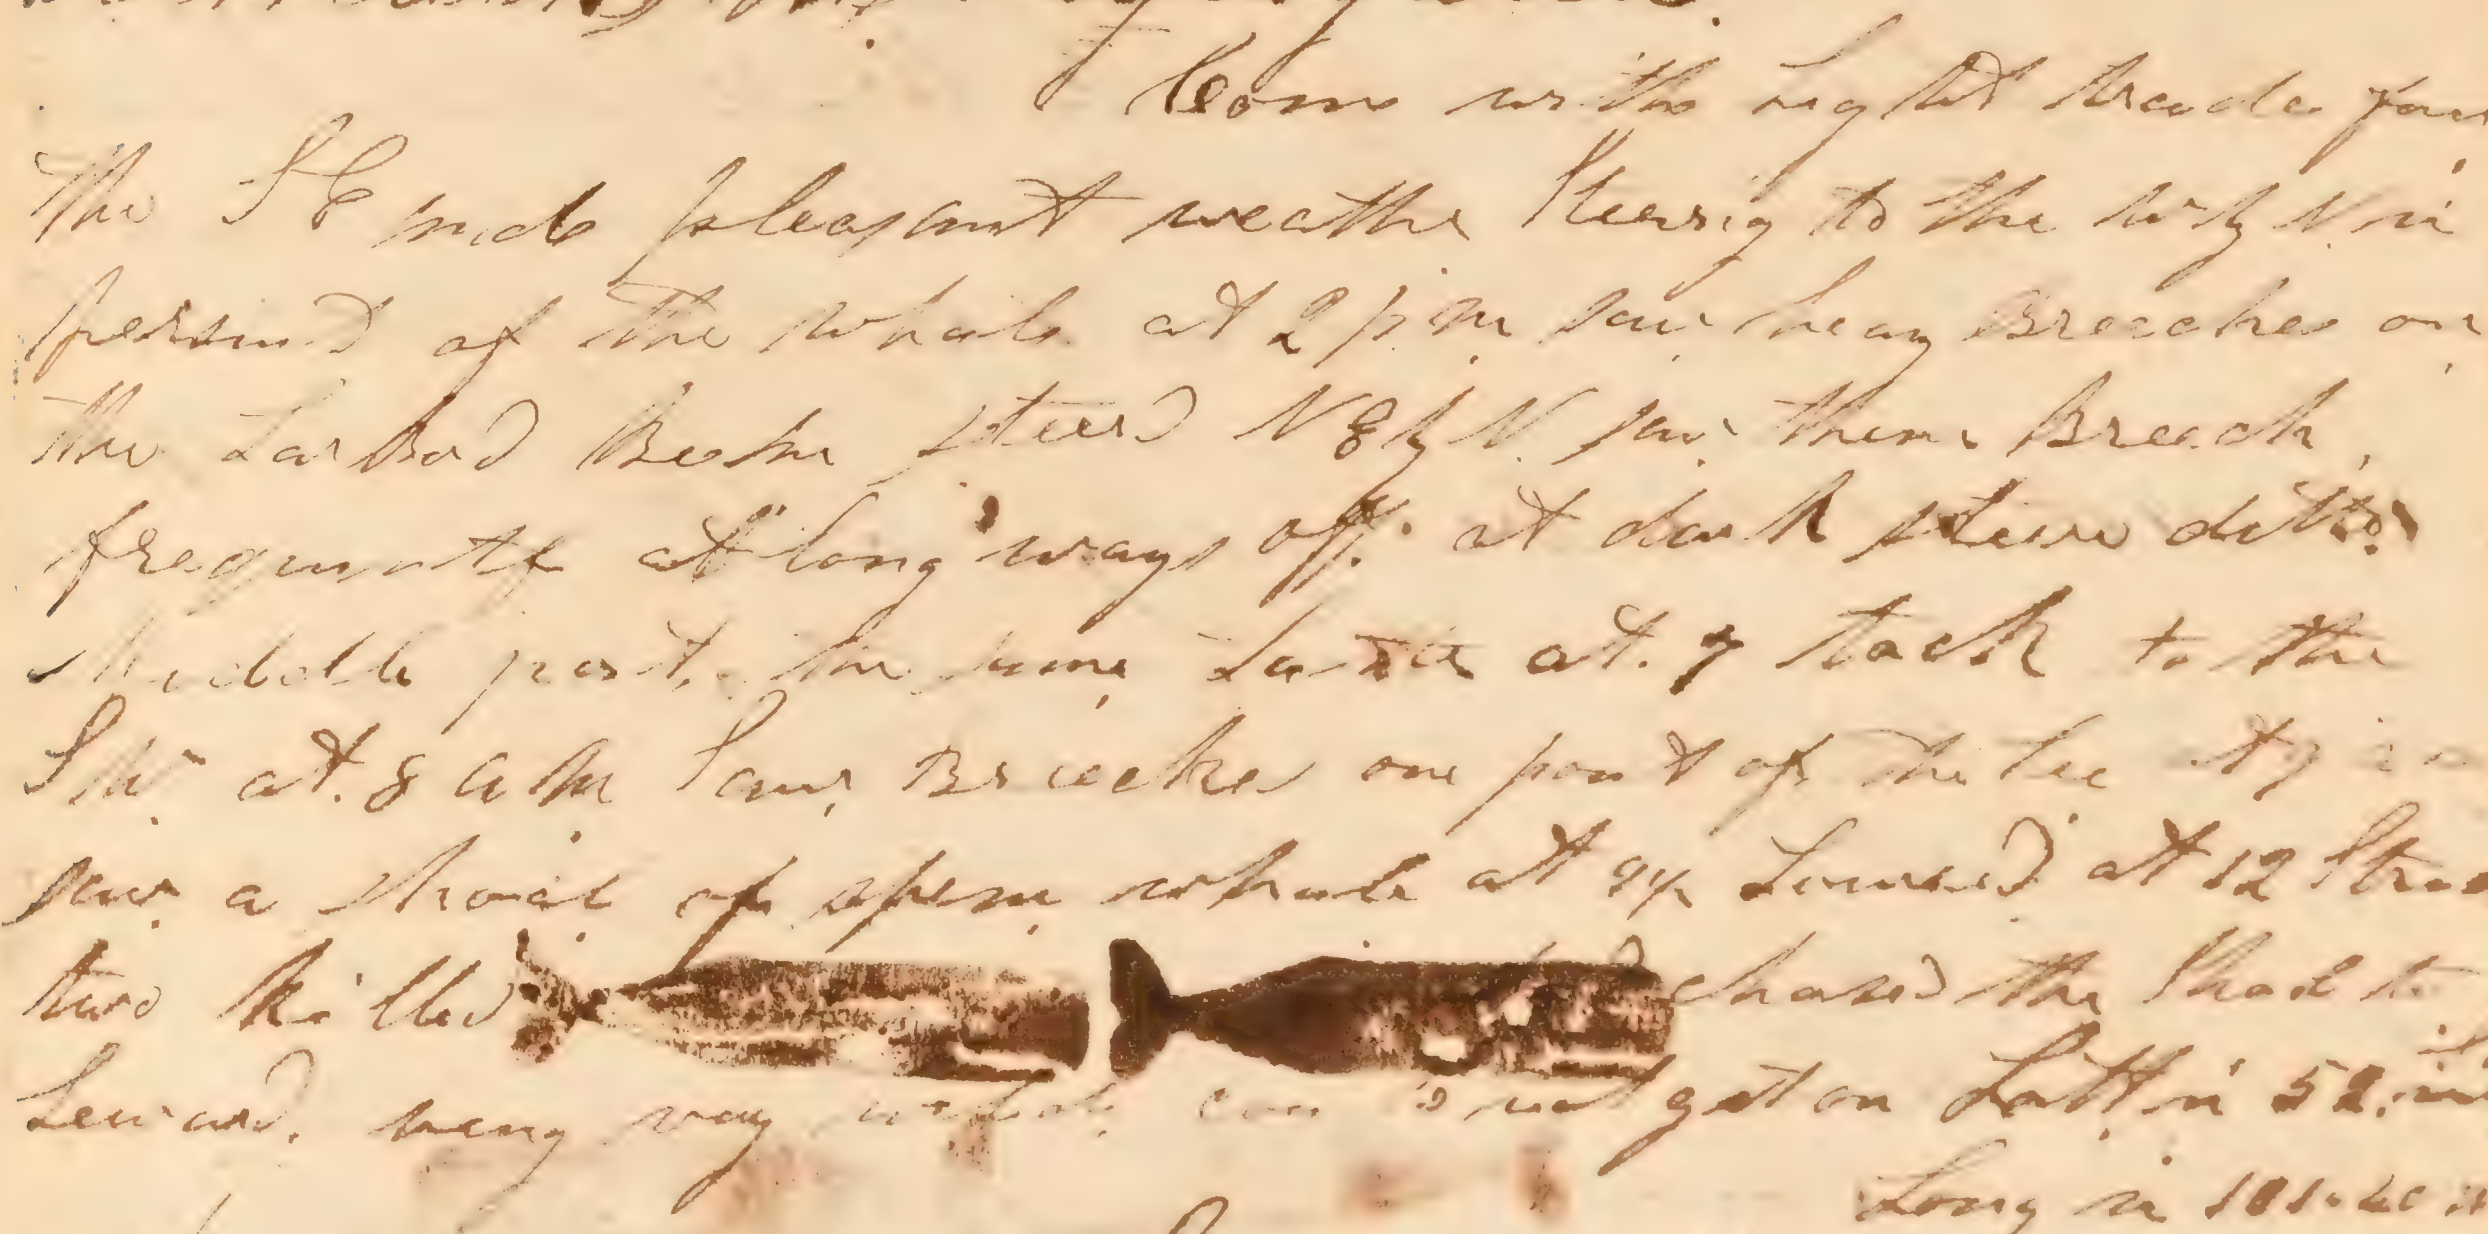 Com with Light trade from
the SE and pleasant weather Steering to the W by N in
persuit of the whale at 2 p m saw heavy Breeches on
the Larbord Beam steerd N by N. saw them Breach
frequently at long ways off. at dark steere ditto
Middle part. the same Latter at. 7 tack to the
SW at. 8 AM Saw Breeches one point of the Lee
saw a shoal of sperm whale at 9½ Lowered at 12 Struck
two killed chased the Shoal to
Leeward. being very not get on Latt in
Long in